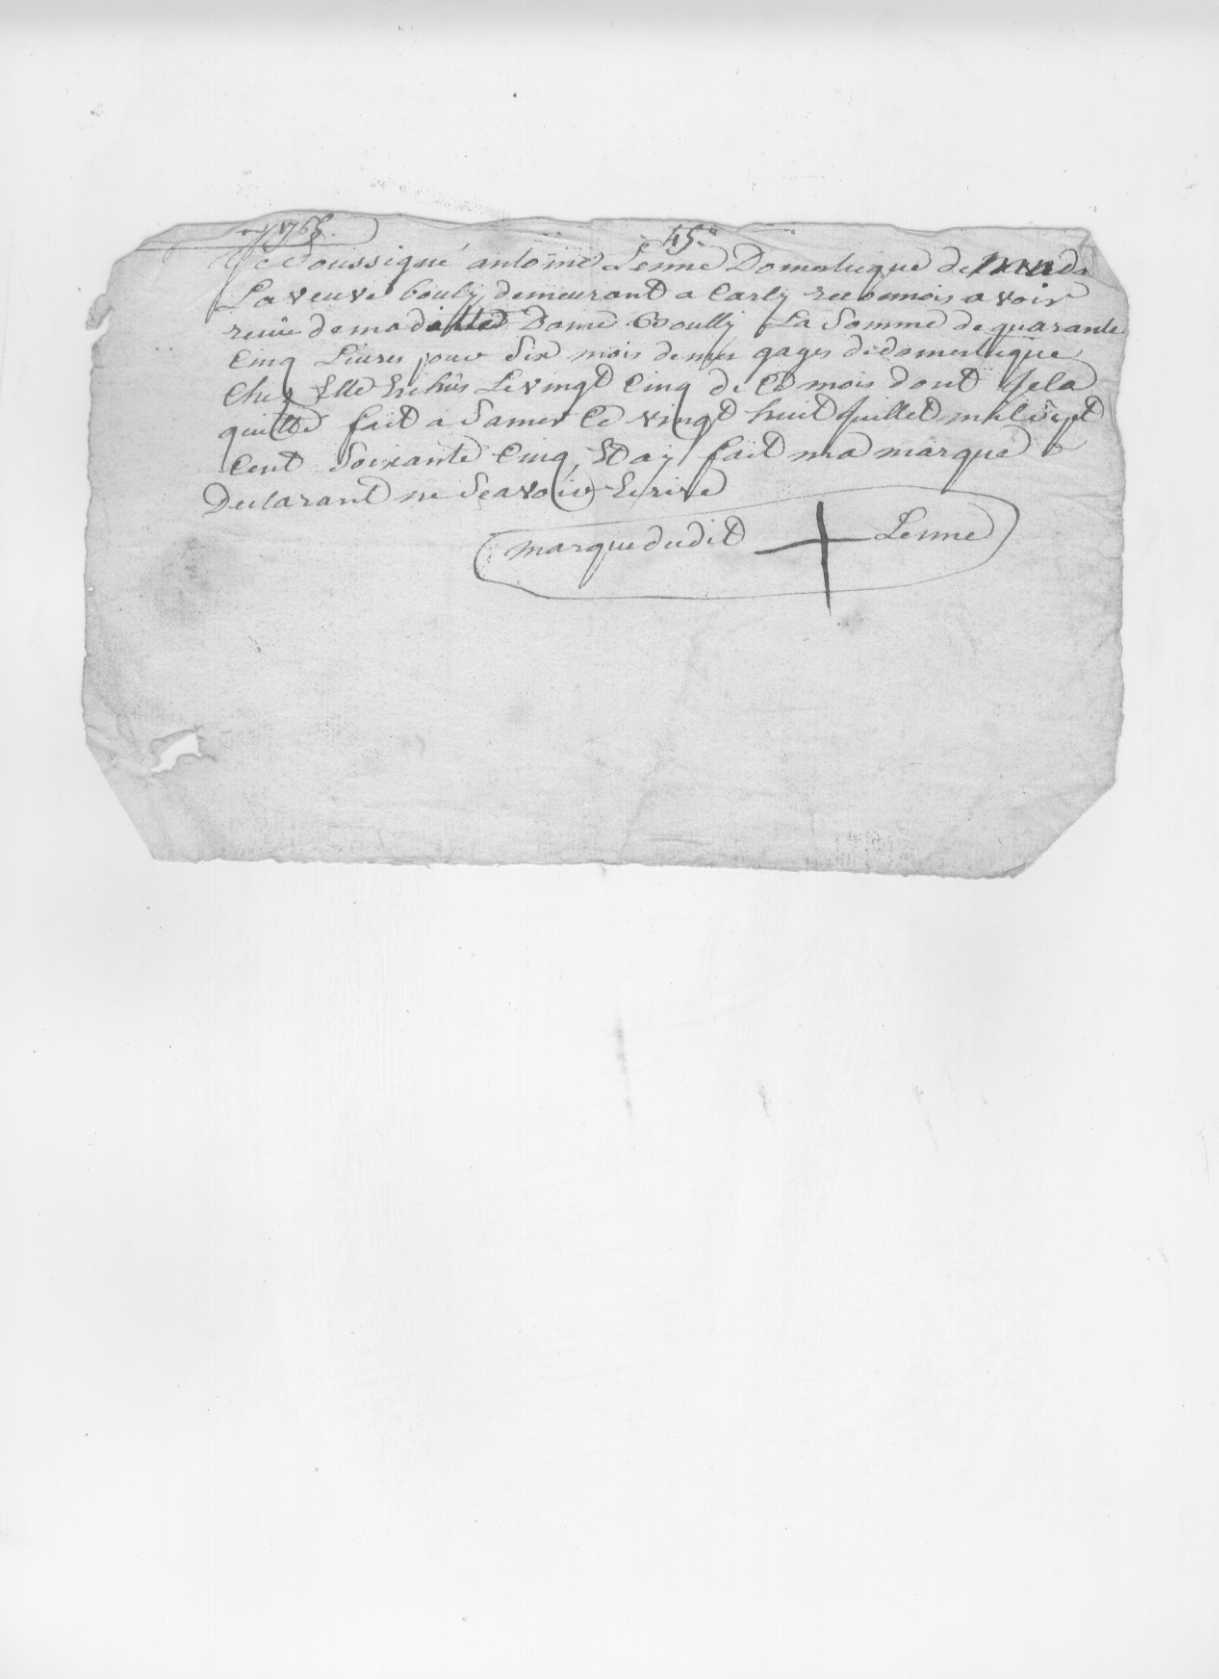 1765. 45.
Je soussigné antoine Lenne Domestique de
La veuve bouly demeurant a Carly reconnois avoir
recüe de maditte Dame Boully La Somme de quarante
Cinq Livres pour Six mois de mes gages de domestique
Chez Elle Echûs Le vingt Cinq de Ce mois dont Je la
quitte fait a Samer Ce vingt huit Juillet mil sept
Cent Soixante Cinq, Et ay fait ma marque
Declarant ne Scavoir Ecrire
marque dudit Lenne